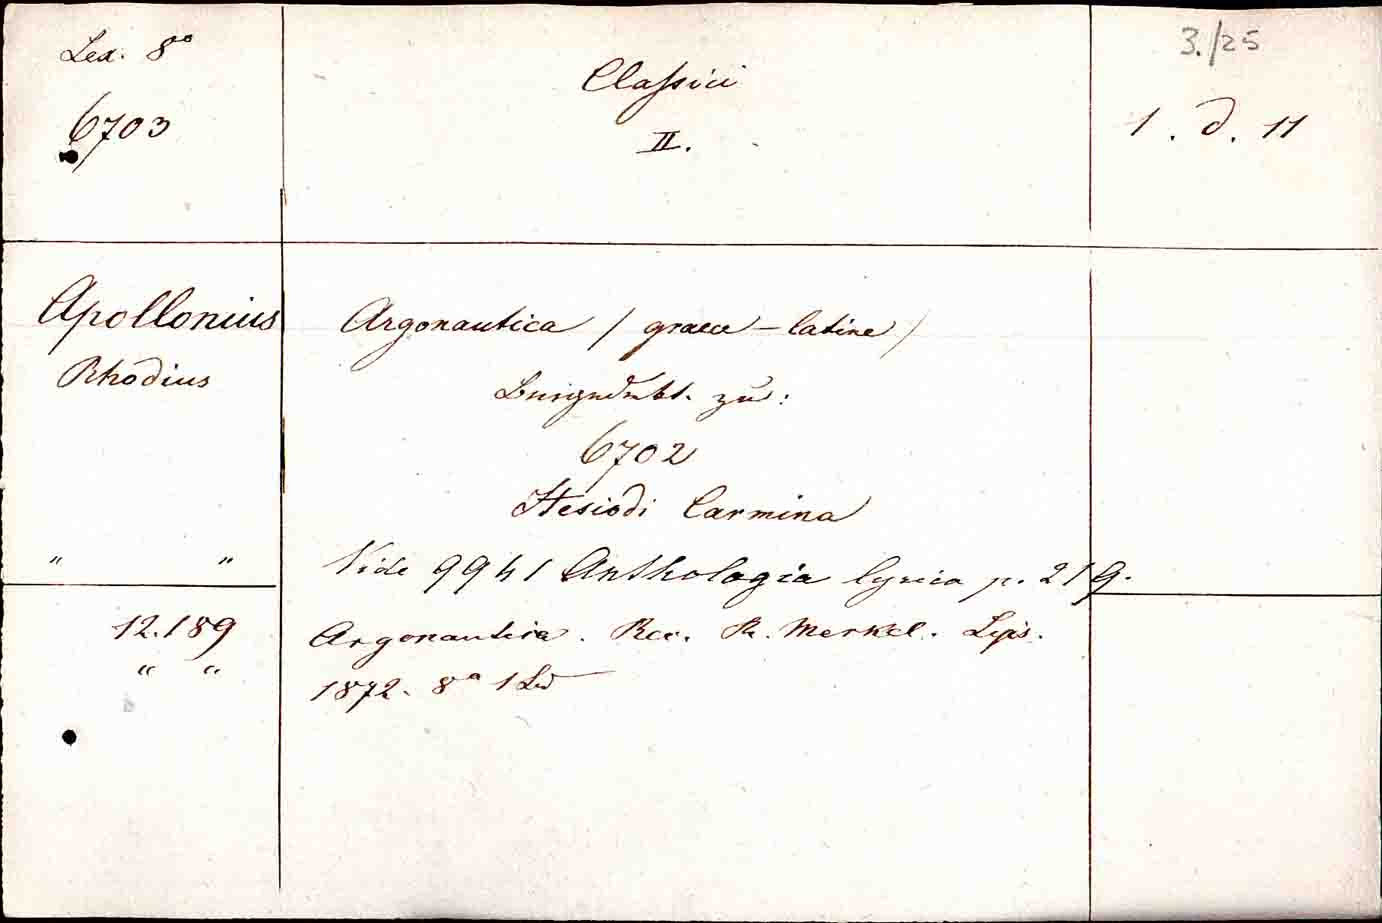 Lex. 8°
6703
Classici
II.
3./25
1. d. 11
Apollonius
Rhodius
Argonautica / graece - latine /
Beigedrkt. zu:
6702
Hesiodi Carmina
" "
Vide 9941 Anthologia lyrica p. 219.
12.189
" "
Argonautica. Rec. R. Merkel. Lips.
1872. 8° 1 Bd